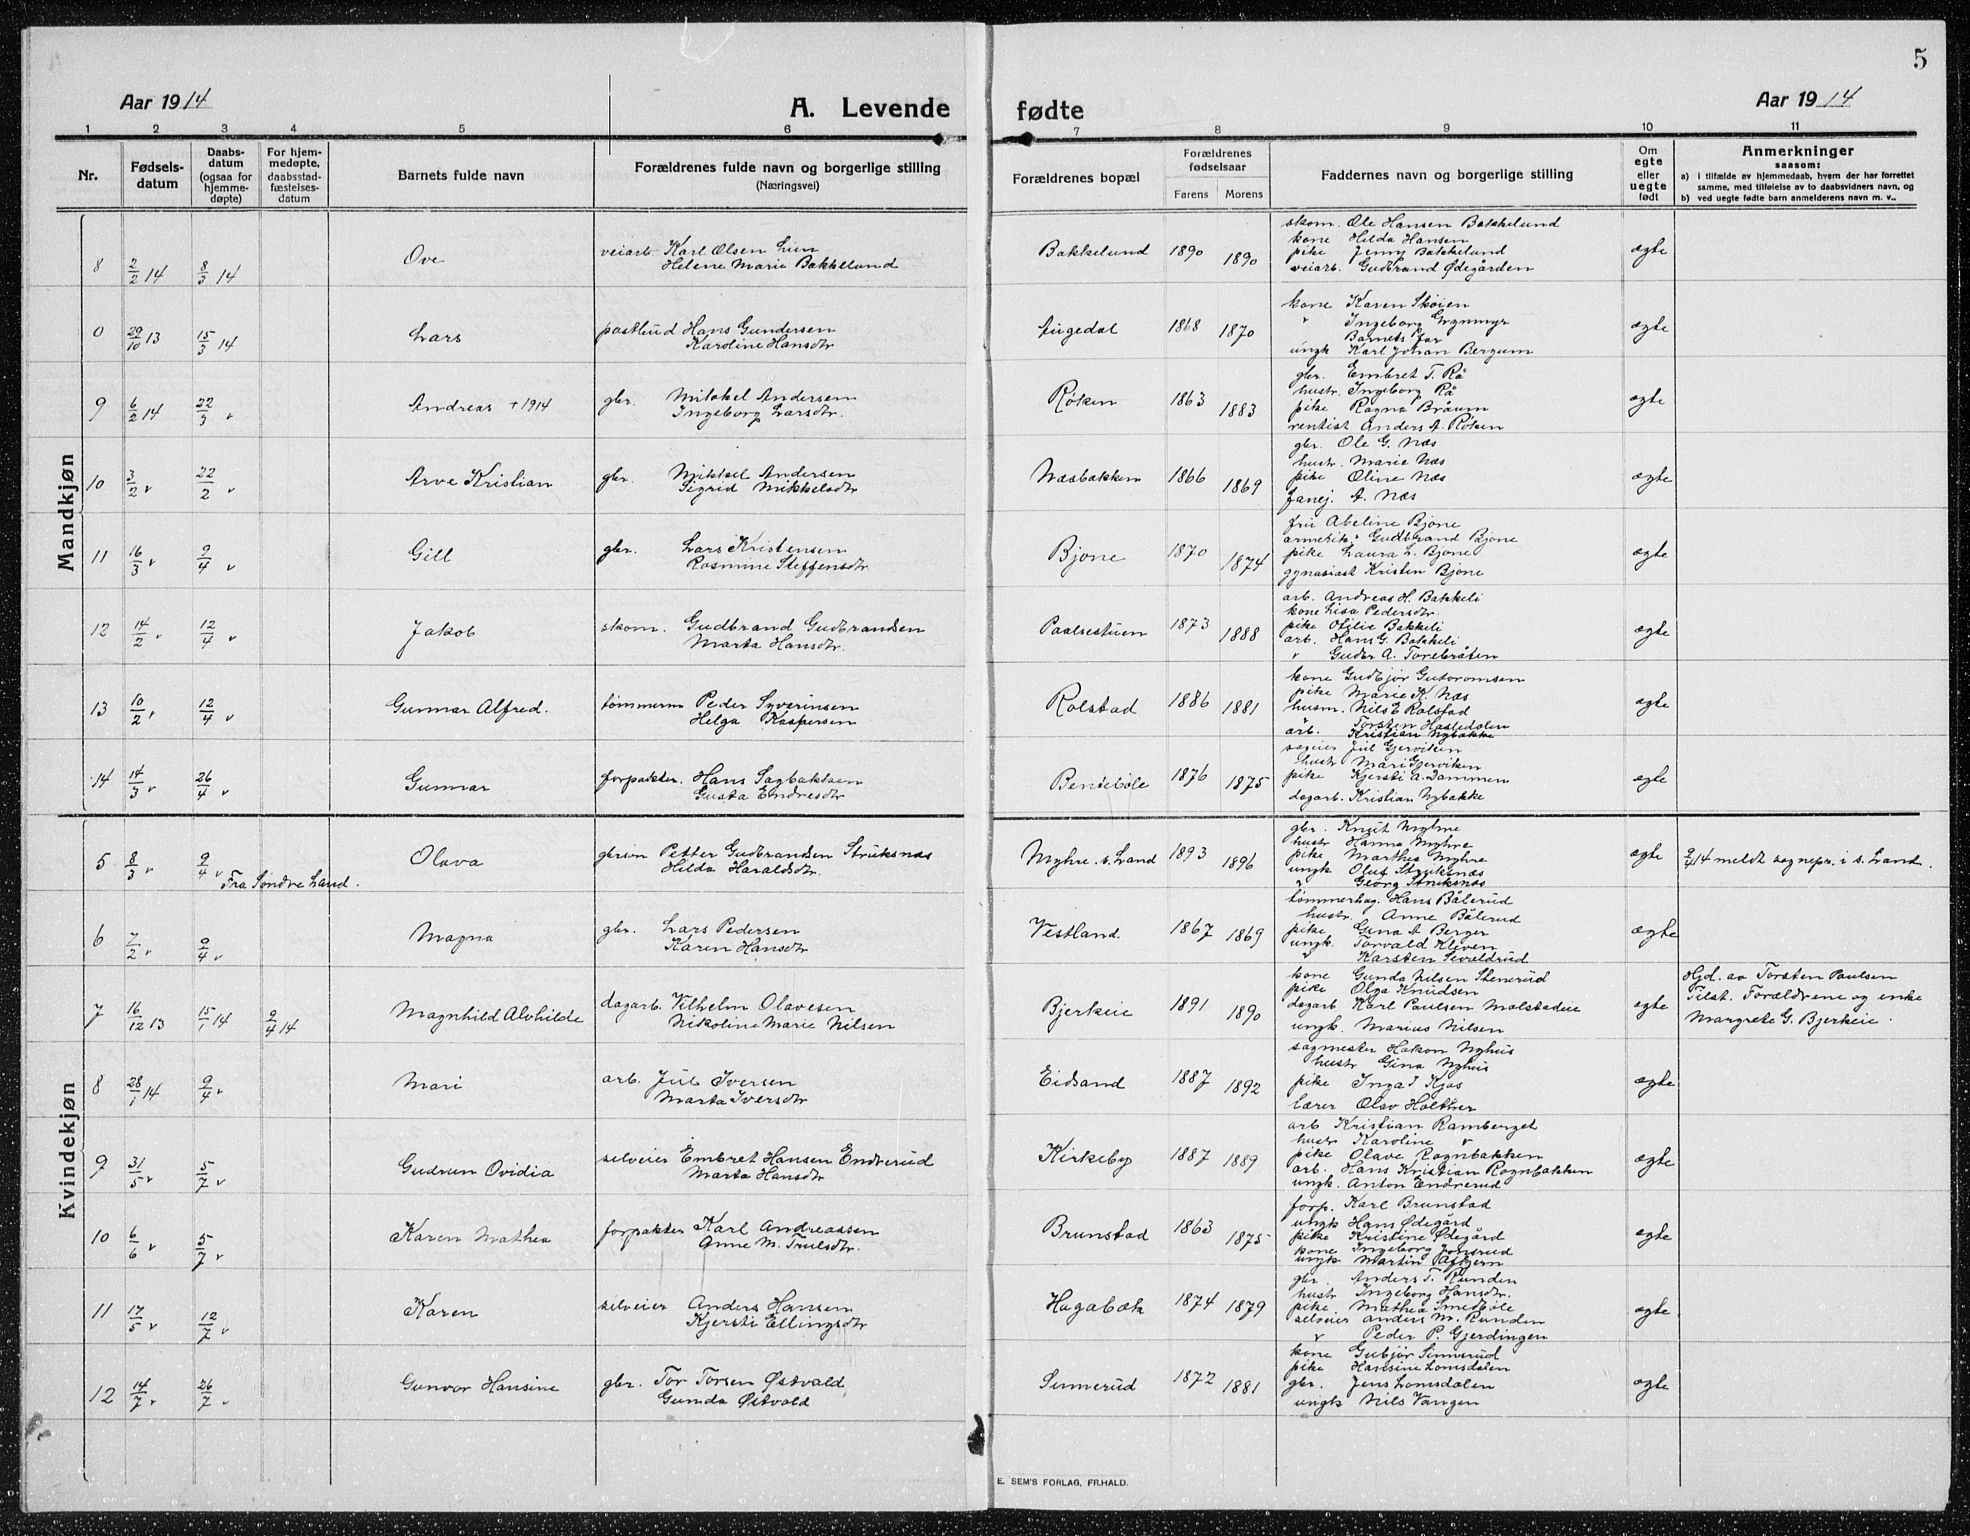 5
Aar 1914
A. Levende fødte
Aar 1914
1 2 3 4 5 6 7 8 9 10 11
Nr.
Fødsels-
datum
Daabs-
datum
(ogsaa for
hjemme-
døpte)
For hjem-
medøpte,
daabsstad-
fæstelses-
datum
Barnets fulde navn
Forældrenes fulde navn og borgerlige stilling
(Næringsvei)
Forældrenes bopæl
Forældrenes
fødselsaar
Farens Morens
Faddernes navn og borgerlige stilling
Om
egte
eller
uegte
født
Anmerkninger
saasom:
a) i tilfælde av hjemmedaab, hvem der har forrettet
samme, med tilføielse av to daabsvidners navn, og
b) ved uegte fødte barn anmelderens navn m. v..
Mandkjøn
8 2/2 14 8/3 14 Ove
veiarb. Karl Olsen Lien
Helene Marie Bakkelund
Bakkelund 1890 1890
skom. Ole Hansen Bakkelund
kone Hilda Hansen
pike Jenny Bakkelund
veiarb. Gudbrand Ødegården
egte
0 29/10 13 15/3 14 Lars
postbud Hans Gundersen
Karoline Hansdtr
Augedal 1868 1870
kone Karen Skøien
" Ingeborg
Barnets far
ungk Karl Johan Bergum
egte
9 6/2 14 22/3 " Andreas + 1914
gbr. Mikkel Andersen
Ingeborg Larsdtr.
Røken 1863 1883
gbr. Embret T. Rå
hustr. Ingeborg Rå
pike Ragna Bråum
rentist Anders A. Røken
egte
10 3/2 " 22/2 " Arve Kristian
gbr. Mikkel Andersen
Sigrid Mikkelsdtr
Næsbakken 1866 1869
gbr. Ole G. Næs
hustr. Marie Næs
pike Oline Næs
fanej. A. Næs
egte
11 16/3 " 9/4 " Gill
gbr. Lars Kristensen
Rosmine Steffensdtr.
Bjone 1870 1874
fru Abeline Bjone
amerik. Gudbrand Bjone
pike Laura L. Bjone
gynasiast Kristen Bjone
egte
12 14/2 " 12/4 " Jakob
skom. Gudbrand Gudbrandsen
Marta Hansdtr.
Paalsestuen 1873 1888
arb. Andreas H. Bakkeli
kone Lisa Pedersdtr.
pike Otilie Bakkeli
arb. Hans G. Bakkeli
" Gudbr A. Torebråten
egte
13 10/2 " 12/4 " Gunnar Alfred.
tømmerm Peder Syverinsen
Helga Kaspersen
Rolstad 1886 1881
kone Gudbjør Gutoromsen
pike Marie K. Næs
husm. Nils E Rolstad
" Torsten Hasledalen
arb. Kristian Nybakke
egte
14 14/3 " 26/4 " Gunnar
forpakter. Hans Sagbakken
Gusta Endresdtr
Bentebøle 1876 1875
sageier Jul Gjerviken
hustr Mari Gjerviken
pike Kjersti A. Dammen
dagarb. Kristian Nybakke
egte
Kvindekjøn
5 8/3 " 9/4 " Olava
Fra Søndre Land.
gbrsøn Petter Gudbrandsen Struksnæs
Hilda Haraldsdtr.
Myhre s. Land 1893 1896
gbr. Knut Myhre
hustr Hanna Myhre
pike Marthea Myhre
ungk Oluf Struksnæs
" Georg Struksnæs
egte 9/4 14 meldt sognepr. i s. Land.
6 7/2 " 9/4 " Magna
gbr. Lars Pedersen
Karen Hansdtr
Vestland. 1867 1869
tømmerhug. Hans Bålerud
hustr. Anne Bålerud
pike Gina A Berger
ungk. Torvald Kleven
" Karsten Sivaldrud
egte
7 16/12 13 15/1 14 9/4 14 Magnhild Alvhilde
dagarb. Vilhelm Olavesen
Nikoline Marie Nilsen
Bjerkeie 1891 1890
kone Gunda Nilsen Stenerud
pike Olga Knudsen
dagarb Karl Paulsen Molstadeie
ungk. Marius Nilsen
egte
Hjd. av Torsten Paulsen
Tilst. Forældrene og enke
Margrete G. Bjerkeie.
8 28/1 14 9/4 " Mari
arb. Jul Iversen
Marta Iversdtr
Eidsand 1887 1892
sagmester Hakon Nyhus
hustr Gina Nyhus
pike Inga J Kjos
lærer Olav Holther
egte
9 31/5 " 5/7 " Gudrun Ovidia
selveier Embret Hansen Endrerud
Marta Hansdtr
Kirkeby 1887 1889
arb Kristian Ramberget
hustr Karoline "
pike Olave Rognbakken
arb. Hans Kristian Rognbakken
ungk. Anton Endrerud
egte
10 6/6 " 5/7 " Karen Mathea
forpakter Karl Andreassen
Anne M. Trulsdtr.
Brunstad 1863 1875
forp. Karl Brunstad
ungk Hans Ødegård
pike Kristine Ødegård
kone Ingeborg Jonsrud
ungk Martin
egte
11 17/5 " 12/7 " Karen
selveier Anders Hansen
Kjersti Ellingsdtr
Hagabæk 1874 1879
gbr. Anders T. Runden
hustr Ingeborg Hansdtr.
pike. Mathea Smedbøle
selveier Anders M. Runden
" Peder P. Gjerdingen
egte
12 14/7 " 26/7 " Gunvor Hansine
gbr. Tor Torsen Østvold,
Gunda Østvold
Sinnerud 1872 1881
kone Gubjør Sinnerud
pike Hansine Lomsdalen
gbr. Jens Lomsdalen
ungk Nils Vangen
egte
E. SEM'S FORLAG, FR.HALD.